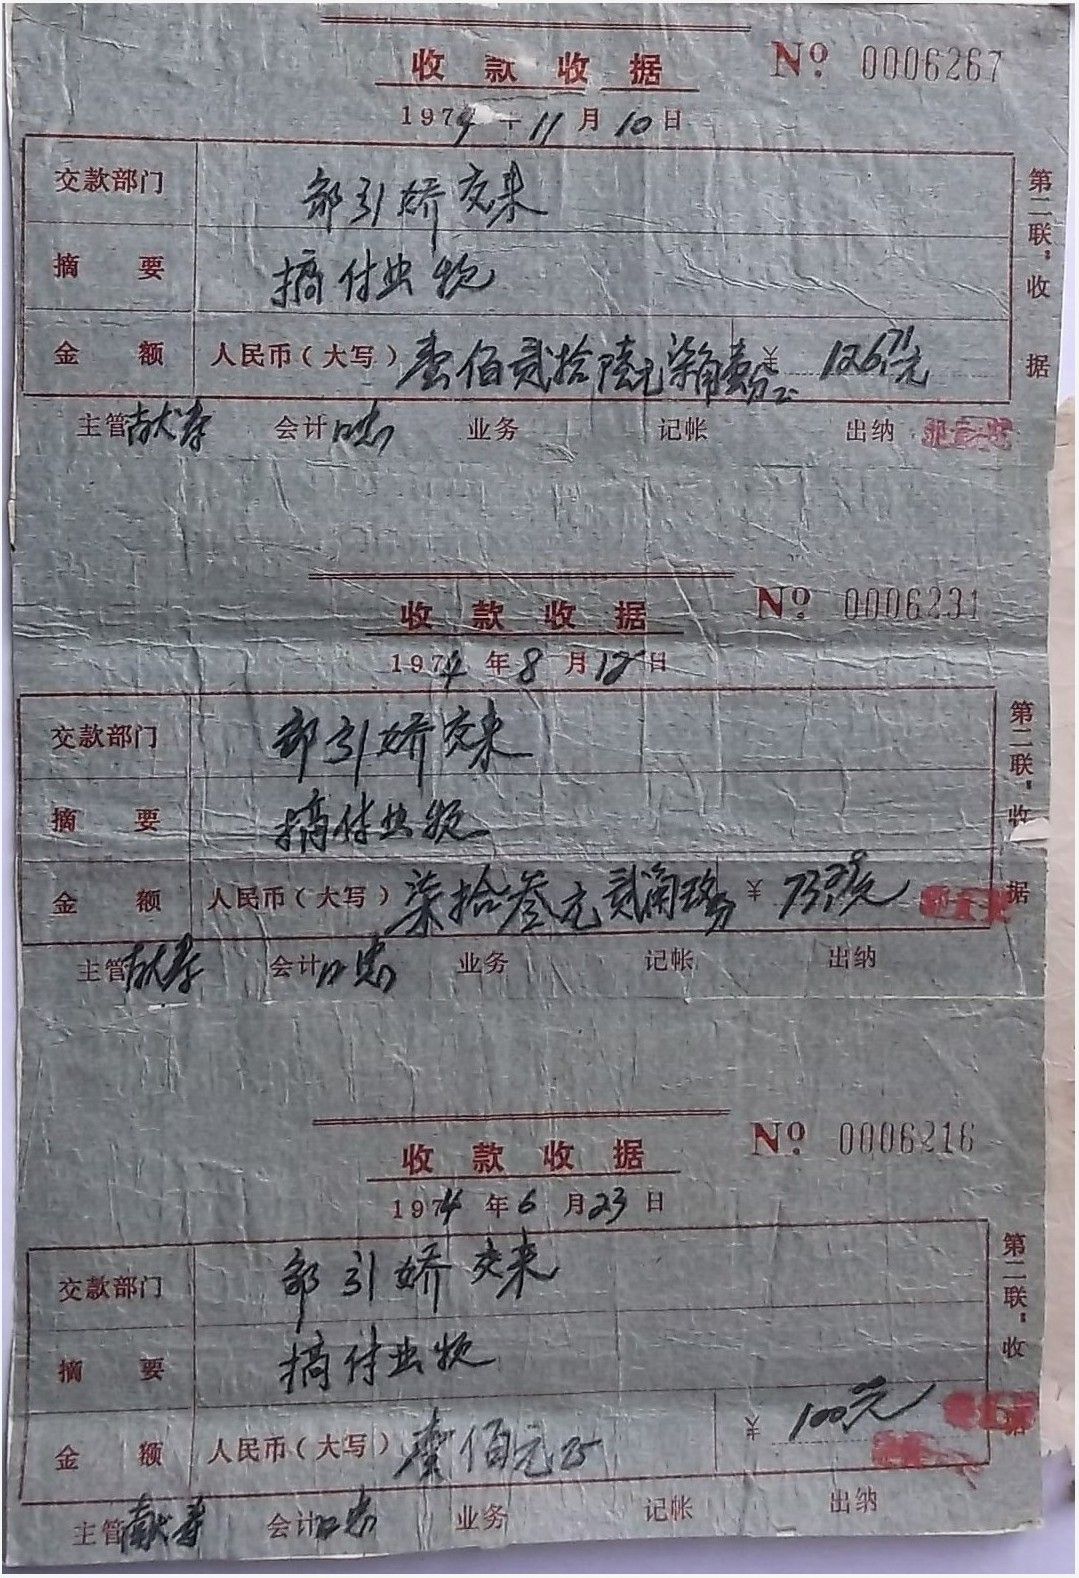 收款收据 No. 0006267
1974 11月10日
交款部门 部引娇交来
摘要 搞付业款
金额 人民币(大写) 壹佰贰拾陆元柒角壹分 ¥ 126.71元
主管 献孝 会计 口忠 业务 记帐 出纳
第二联:收据
收款收据 No. 0006231
1974年8月12日
交款部门 部引娇交来
摘要 搞付业款
金额 人民币(大写) 柒拾叁元贰角 ¥
主管 献孝 会计 口忠 业务 记帐 出纳
第二联:收据
收款收据 No. 0006216
1974年6月23日
交款部门 部引娇交来
摘要 搞付业款
金额 人民币(大写) 壹佰元正 ¥ 100元
主管 献孝 会计 口忠 业务 记帐 出纳
第二联:收据